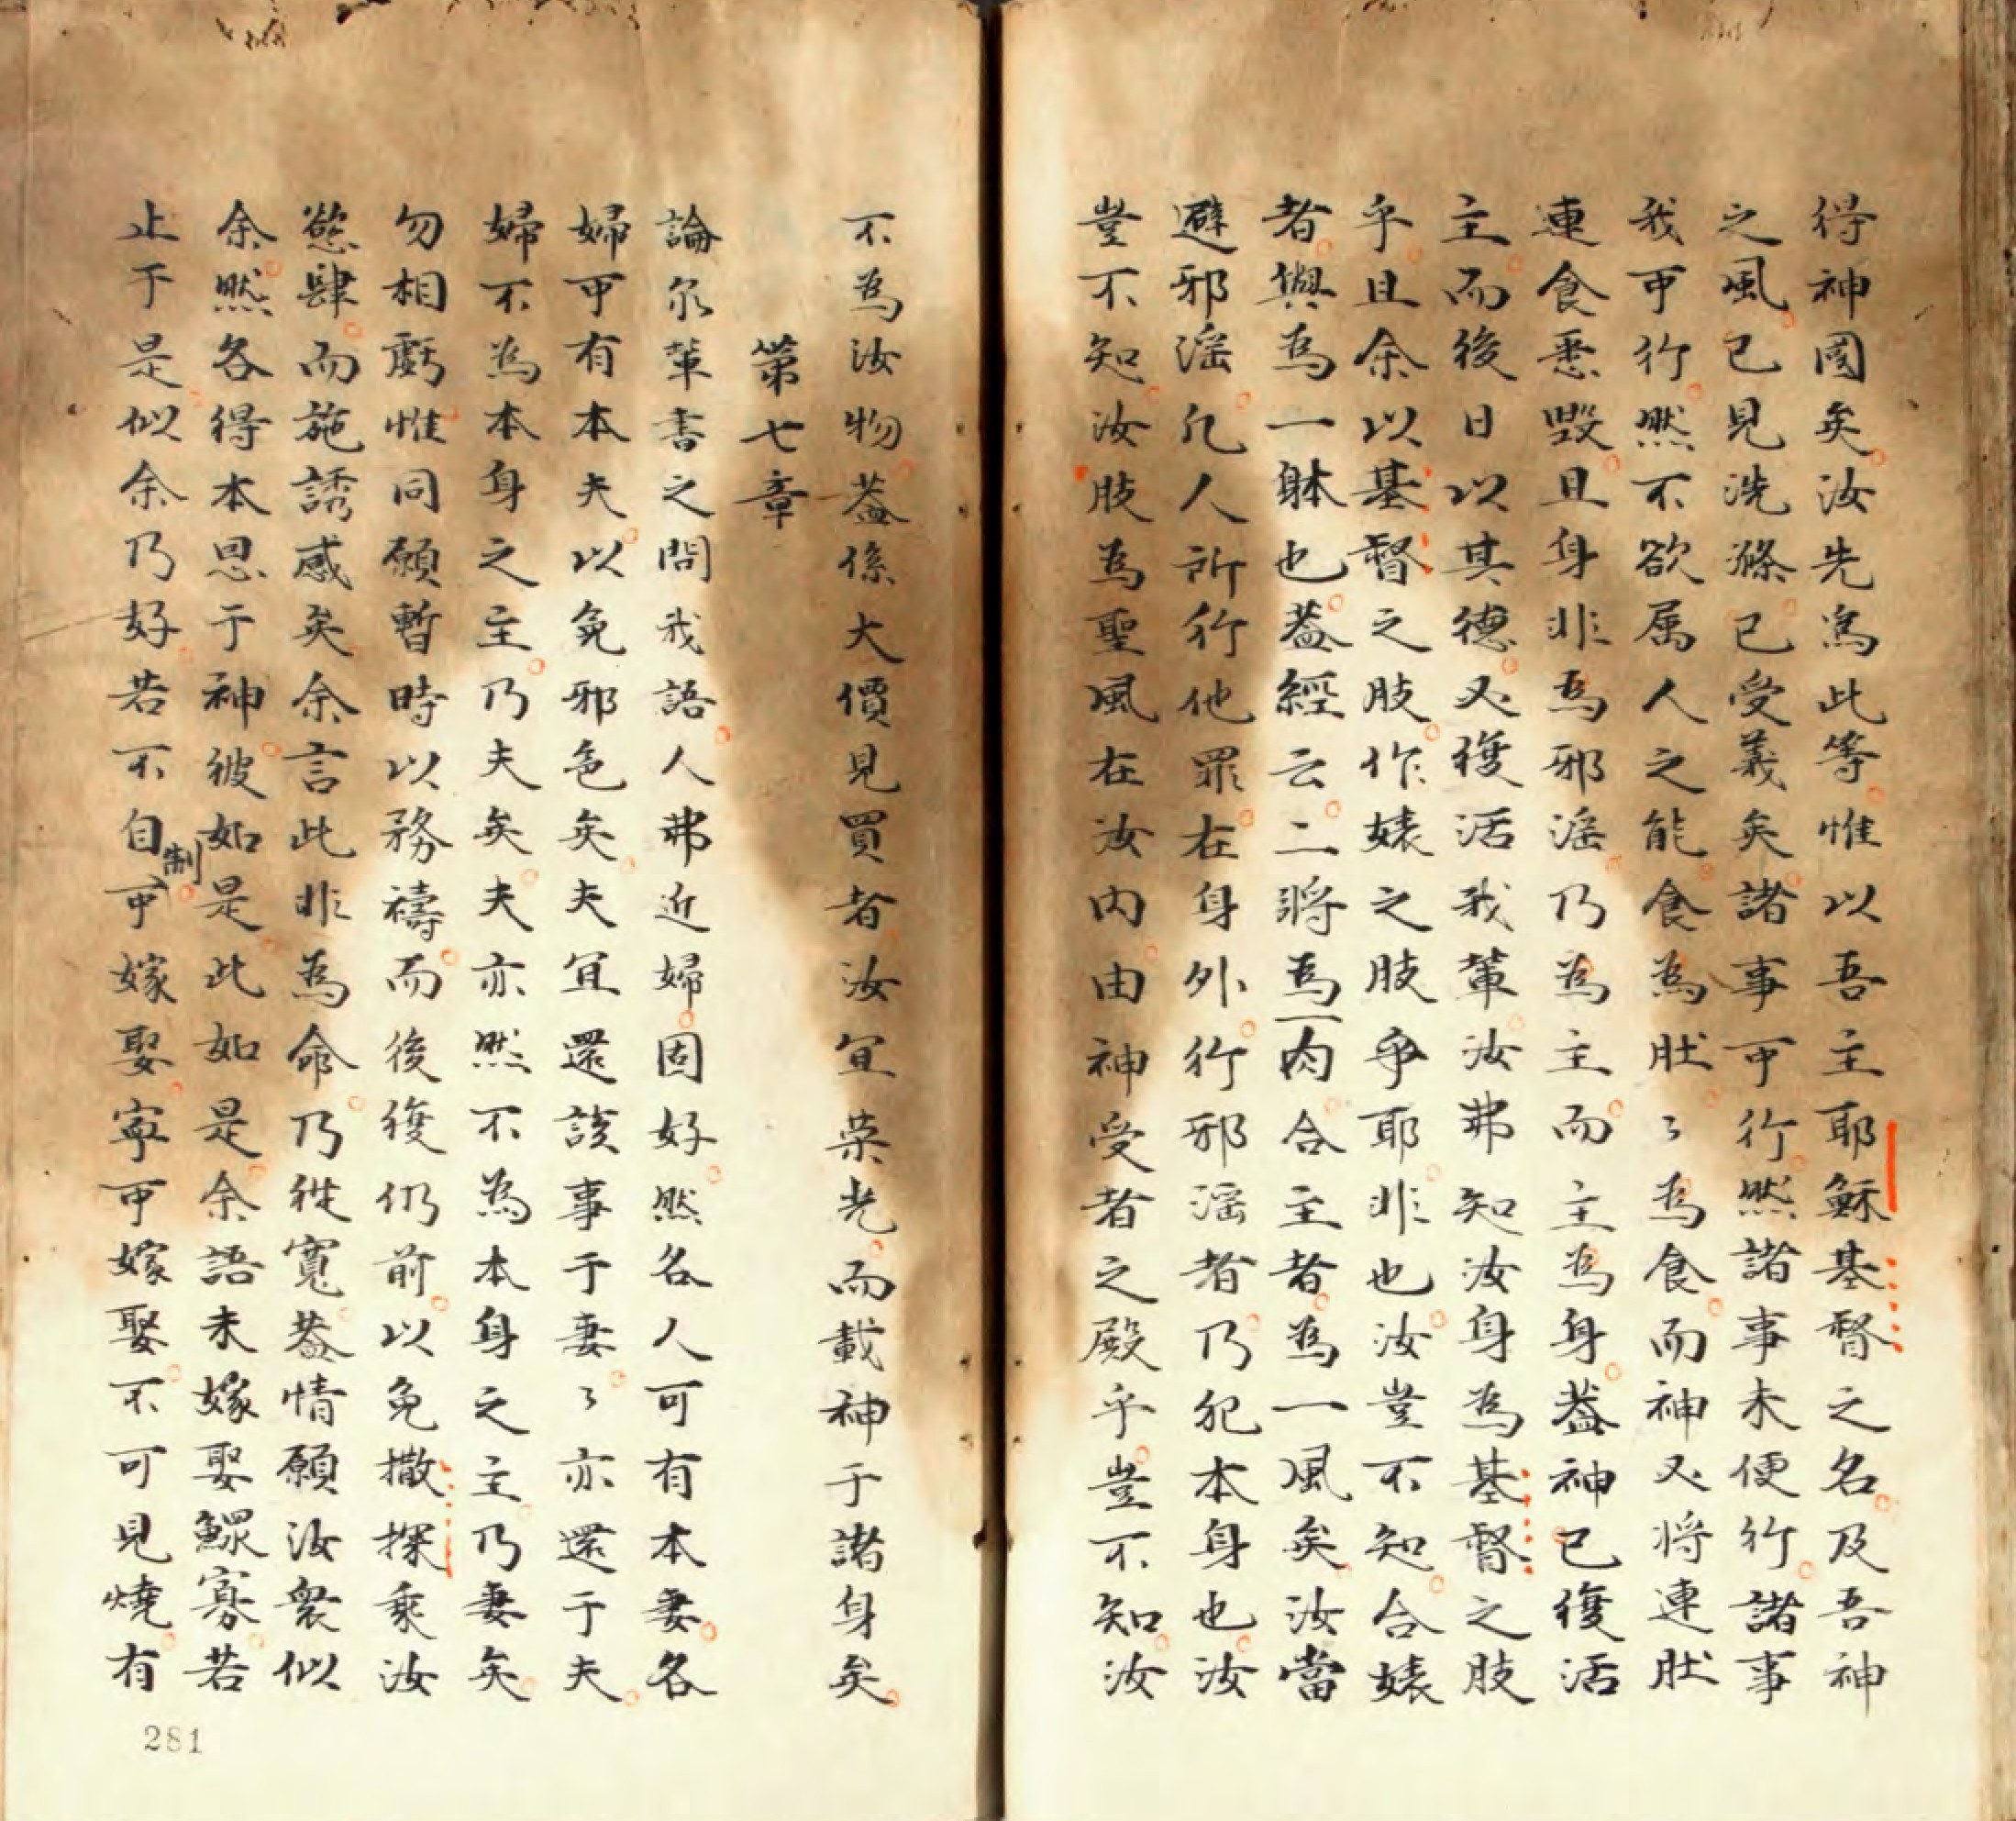 得神國矣汝先爲此等惟以吾主耶穌基督之名及吾神
之風已見洗滌已受義矣諸事可行然諸事未便行諸事
我可行然不欲属人之能食為肚〻為食而神又将連肚
連食悉毀且身非爲邪淫乃為主而主為身蓋神已復活
主而後日以其德又復活我輩汝弗知汝身為基督之肢
乎且余以基督之肢作婊之肢爭耶非也汝豈不知合婊
者與爲一躰也蓋經云二將爲一肉合主者為一風矣汝當
避邪淫凡人所行他罪在身外行邪淫者乃犯本身也汝
豈不知汝肢為聖風在汝内由神受者之殿乎豈不知汝
不為汝物蓋係大價見買者汝宜荣光而載神于諸身矣
第七章
論尔輩書之問我語人弗近婦固好然各人可有本妻各
婦可有本夫以免邪色矣夫宜還該事于妻〻亦還于夫
婦不為本身之主乃夫矣夫亦然不為本身之主乃妻矣
勿相虧惟同願暫時以務禱而後復仍前以免撒探乘汝
慾肆而施誘感矣余言此非為命乃從寬蓋情願汝衆似
余然各得本恩于神彼如是此如是余語未嫁娶鰥寡若
止于是似余乃好若不自制可嫁娶寧可嫁娶不可見燒有
281